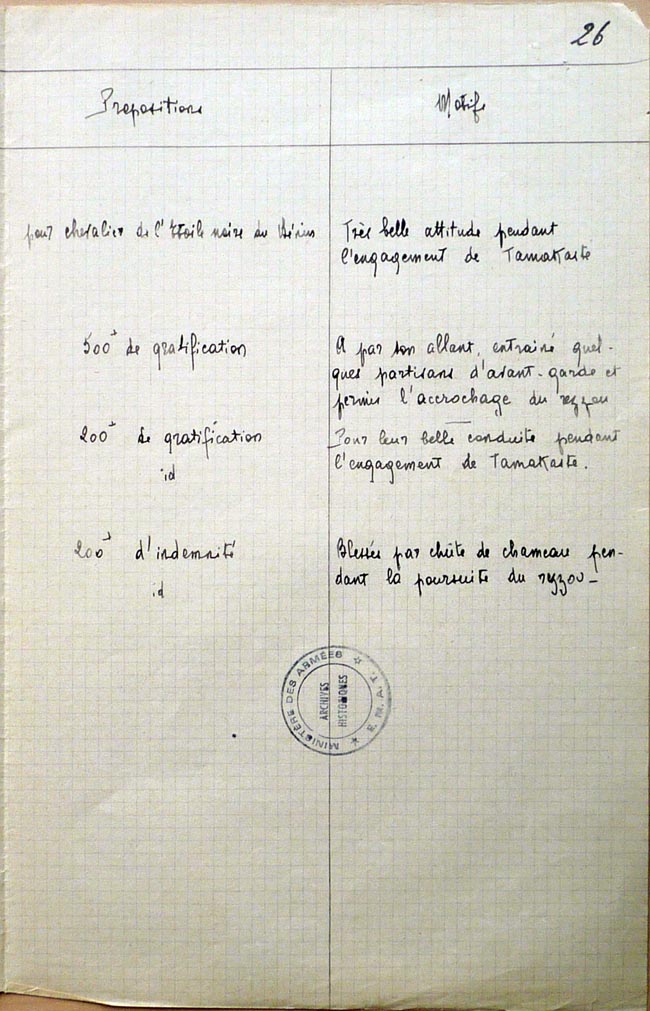 26
Propositions
Motifs
pour chevalier de l'Etoile noire du Bénin
Très belle attitude pendant
l'engagement de Tamakaste
500f de gratification
A par son allant, entrainé quel-
ques partisans d'avant-garde et
permis l'accrochage du rezzou
200f de gratification
id
Pour leur belle conduite pendant
l'engagement de Tamakaste.
200f d'indemnité
id
Blessés par chûte de chameau pen-
dant la poursuite du rezzou_
MINISTÈRE DES ARMÉES ★ E.M.A.T. ★
ARCHIVES
HISTORIQUES